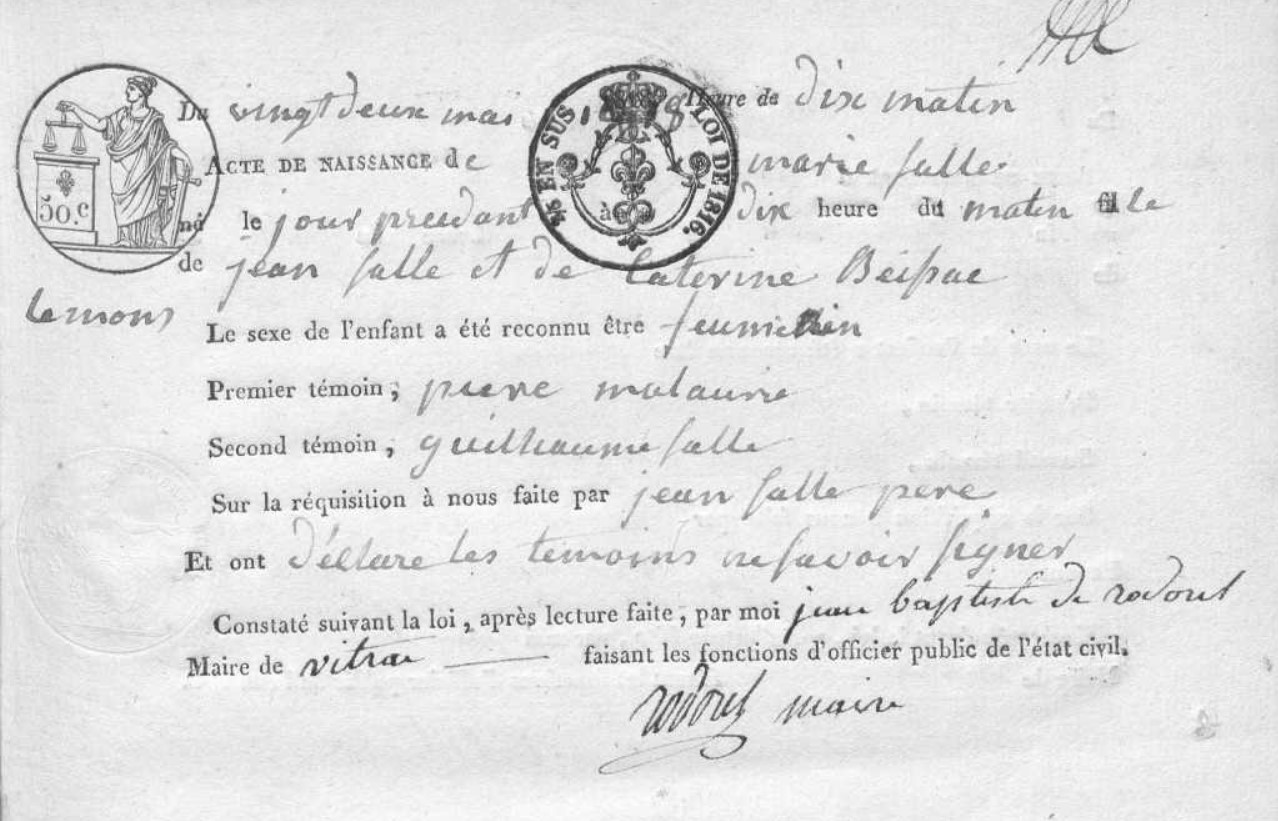 Du vingt deux mai 1818 Heure de dix matin
ACTE DE NAISSANCE de marie salle
né le jour precdant à dix heure du matin fille
de jean salle et de Caterine Beissac
lemons
Le sexe de l'enfant a été reconnu être
Premier témoin, pierre malaurie
Second témoin, guilhaume salle
Sur la réquisition à nous faite par jean salle pere
Et ont déclare les temoins ne savoir signer
Constaté suivant la loi, après lecture faite, par moi jean baptiste de rodorel
Maire de vitrac faisant les fonctions d'officier public de l'état civil.
rodorel maire
50.C
1/5 EN SUS LOI DE 1816.